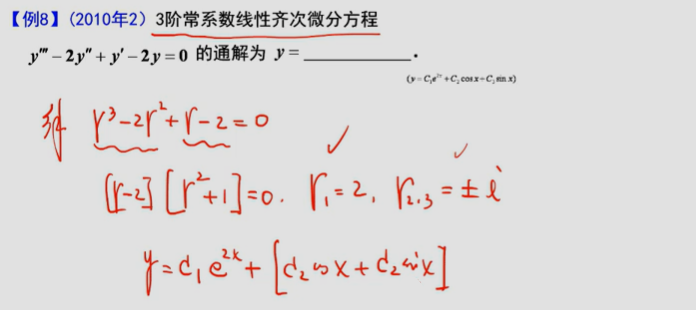 【例8】(2010年2) 3阶常系数线性齐次微分方程
y''' − 2y'' + y' − 2y = 0 的通解为 y = ________.
(y = C₁e²ˣ + C₂ cos x + C₃ sin x)
解 r³−2r²+r−2=0
[r−2][r²+1]=0. r₁=2, r₂.₃=±i
y=c₁e²ˣ+[c₂cosx+c₂sinx]